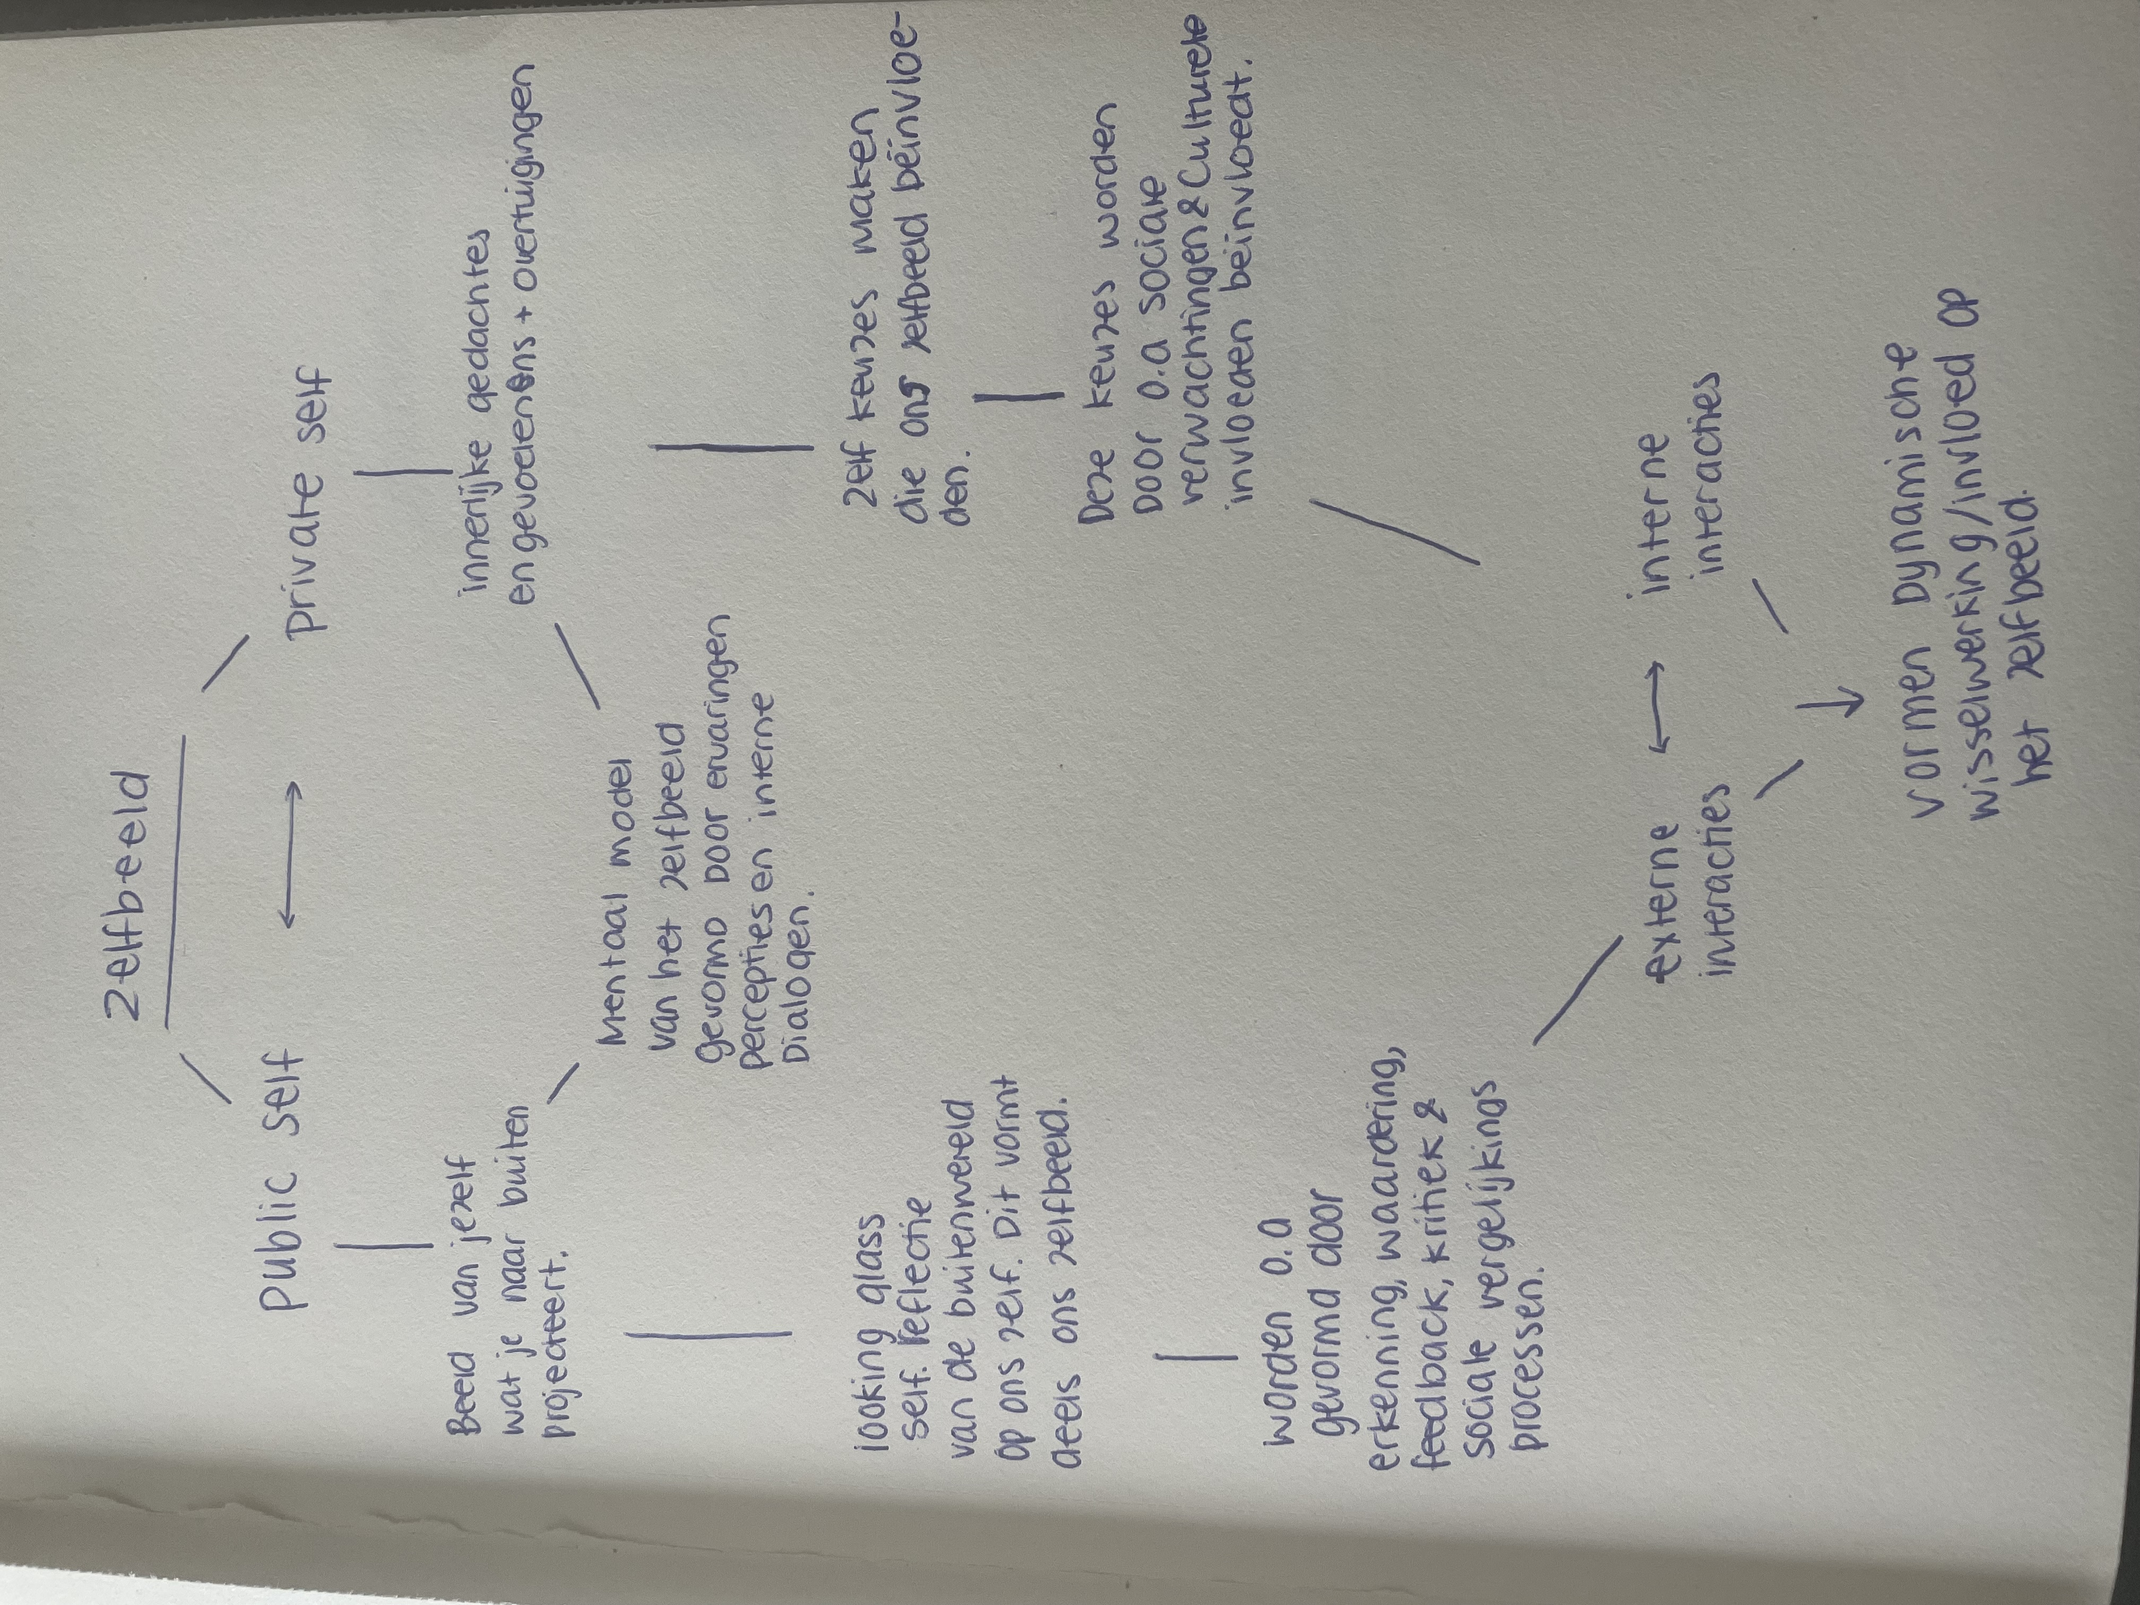 Zelfbeeld
public self
private self
Beeld van jezelf
wat je naar buiten
projecteert.
innerlijke gedachtes
en gevoelens + overtuigingen
Mentaal model
van het zelfbeeld
gevormd door ervaringen
percepties en interne
Dialogen.
looking glass
self. reflectie
van de buitenwereld
op ons zelf. Dit vormt
deels ons zelfbeeld.
zelf keuzes maken
die ons zelfbeeld beïnvloe-
den.
Deze keuzes worden
door o.a sociale
verwachtingen & Culturele
invloeden beïnvloedt.
worden o.a
gevormd door
erkenning, waardering,
feedback, kritiek &
sociale vergelijkings
processen.
externe
interacties
interne
interacties
vormen Dynamische
wisselwerking/invloed op
het zelfbeeld.